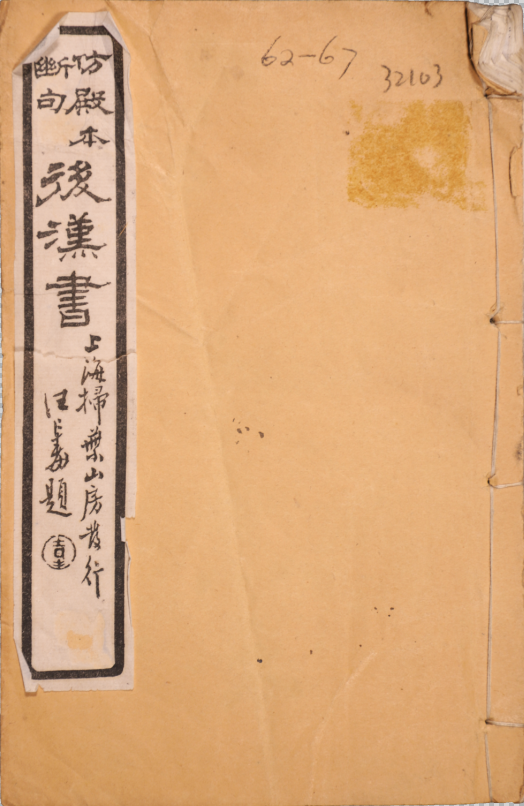 62-67
32103
仿殿本
斷句
後漢書
上海掃葉山房發行
題